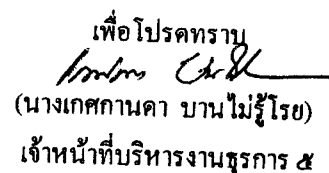 เพื่อโปรดทราบ
(นางเกศกานดา บานไม่รู้โรย)
เจ้าหน้าที่บริหารงานธุรการ ๕